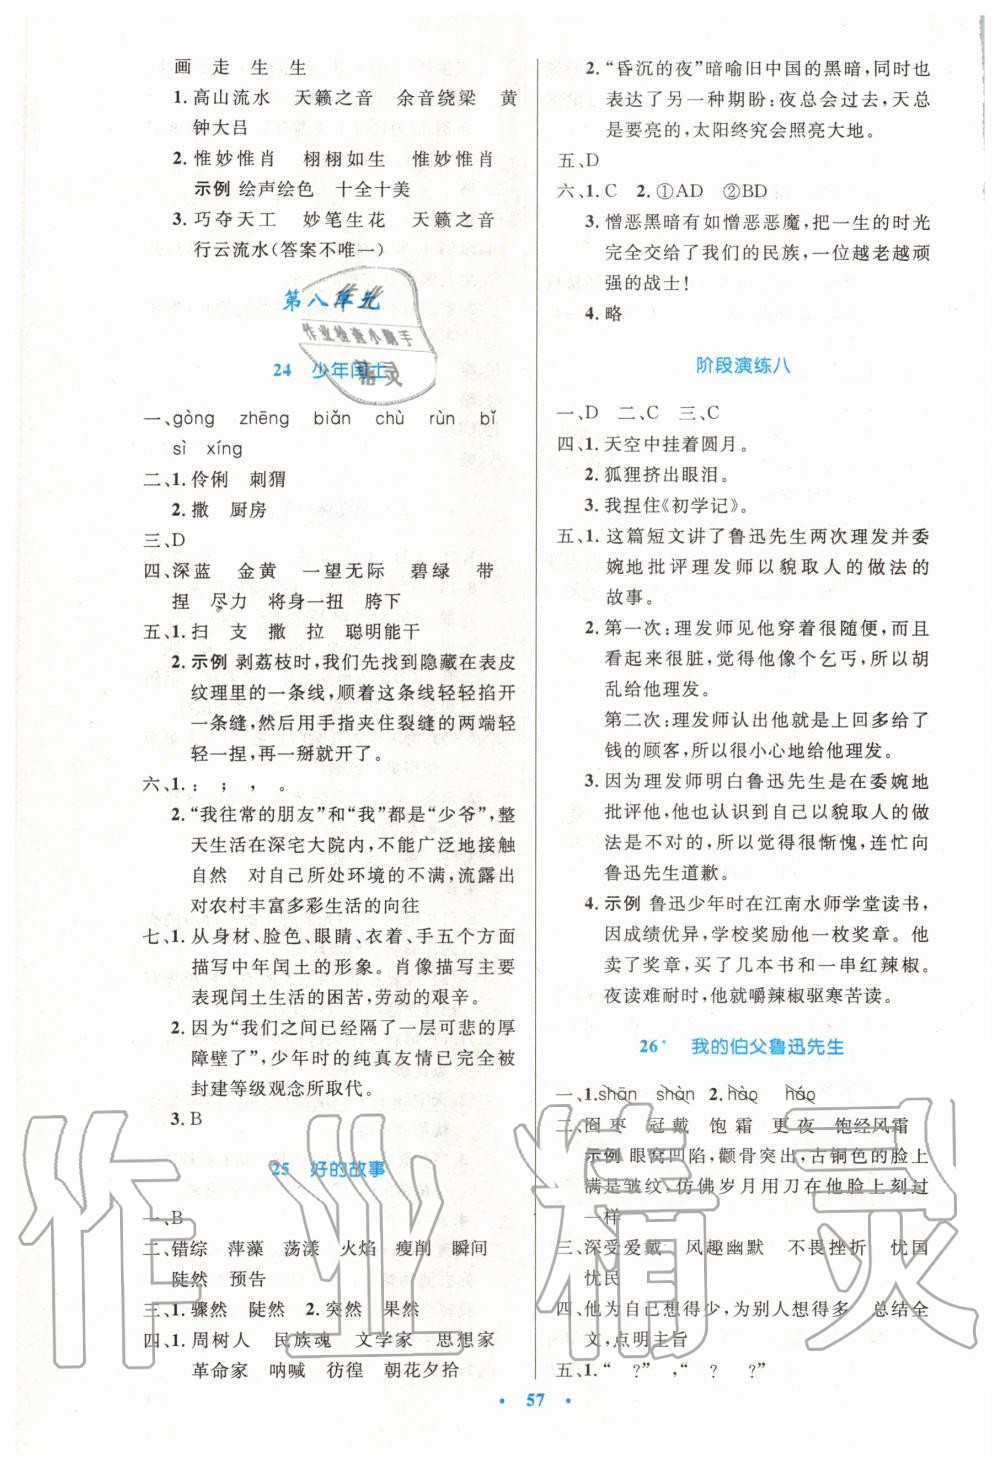 画　走　生　生
1. 高山流水　天籁之音　余音绕梁　黄
钟大吕
2. 惟妙惟肖　栩栩如生　惟妙惟肖
示例 绘声绘色　十全十美
3. 巧夺天工　妙笔生花　天籁之音
行云流水(答案不唯一)
第八单元
作业
作业检查小助手
精灵
24　少年闰土
一、gòng　zhēng　biǎn　chù　rùn　bǐ
sì　xíng
二、1. 伶俐　刺猬
2. 撒　厨房
三、D
四、深蓝　金黄　一望无际　碧绿　带
捏　尽力　将身一扭　胯下
五、1. 扫　支　撒　拉　聪明能干
2. 示例 剥荔枝时,我们先找到隐藏在表皮
纹理里的一条线,顺着这条线轻轻掐开
一条缝,然后用手指夹住裂缝的两端轻
轻一捏,再一掰就开了。
六、1. ：　；　，　。
2. “我往常的朋友”和“我”都是“少爷”,整
天生活在深宅大院内,不能广泛地接触
自然　对自己所处环境的不满,流露出
对农村丰富多彩生活的向往
七、1. 从身材、脸色、眼睛、衣着、手五个方面
描写中年闰土的形象。肖像描写主要
表现闰土生活的困苦,劳动的艰辛。
2. 因为“我们之间已经隔了一层可悲的厚
障壁了”,少年时的纯真友情已完全被
封建等级观念所取代。
3. B
25　好的故事
一、B
二、错综　萍藻　荡漾　火焰　瘦削　瞬间
陡然　预告
三、1. 骤然　陡然　2. 突然　果然
四、1. 周树人　民族魂　文学家　思想家
革命家　呐喊　彷徨　朝花夕拾
2. “昏沉的夜”暗喻旧中国的黑暗,同时也
表达了另一种期盼:夜总会过去,天总
是要亮的,太阳终究会照亮大地。
五、D
六、1. C　2. ①AD　②BD
3. 憎恶黑暗有如憎恶恶魔,把一生的时光
完全交给了我们的民族,一位越老越顽
强的战士!
4. 略
阶段演练八
一、D　二、C　三、C
四、1. 天空中挂着圆月。
2. 狐狸挤出眼泪。
3. 我捏住《初学记》。
五、1. 这篇短文讲了鲁迅先生两次理发并委
婉地批评理发师以貌取人的做法的
故事。
2. 第一次:理发师见他穿着很随便,而且
看起来很脏,觉得他像个乞丐,所以胡
乱给他理发。
第二次:理发师认出他就是上回多给了
钱的顾客,所以很小心地给他理发。
3. 因为理发师明白鲁迅先生是在委婉地
批评他,他也认识到自己以貌取人的做
法是不对的,所以觉得很惭愧,连忙向
鲁迅先生道歉。
4. 示例 鲁迅少年时在江南水师学堂读书,
因成绩优异,学校奖励他一枚奖章。他
卖了奖章,买了几本书和一串红辣椒。
夜读难耐时,他就嚼辣椒驱寒苦读。
26*　我的伯父鲁迅先生
一、1. shān　shàn　2. hào　háo
二、囵　枣　冠　戴　饱　霜　更　夜　饱经风霜
示例 眼窝凹陷,颧骨突出,古铜色的脸上
满是皱纹,仿佛岁月用刀在他脸上刻过
一样
三、深受爱戴　风趣幽默　不畏挫折　忧国
忧民
四、他为自己想得少,为别人想得多　总结全
文,点明主旨
五、1. “　?”,“　?　?”
57
作业精灵